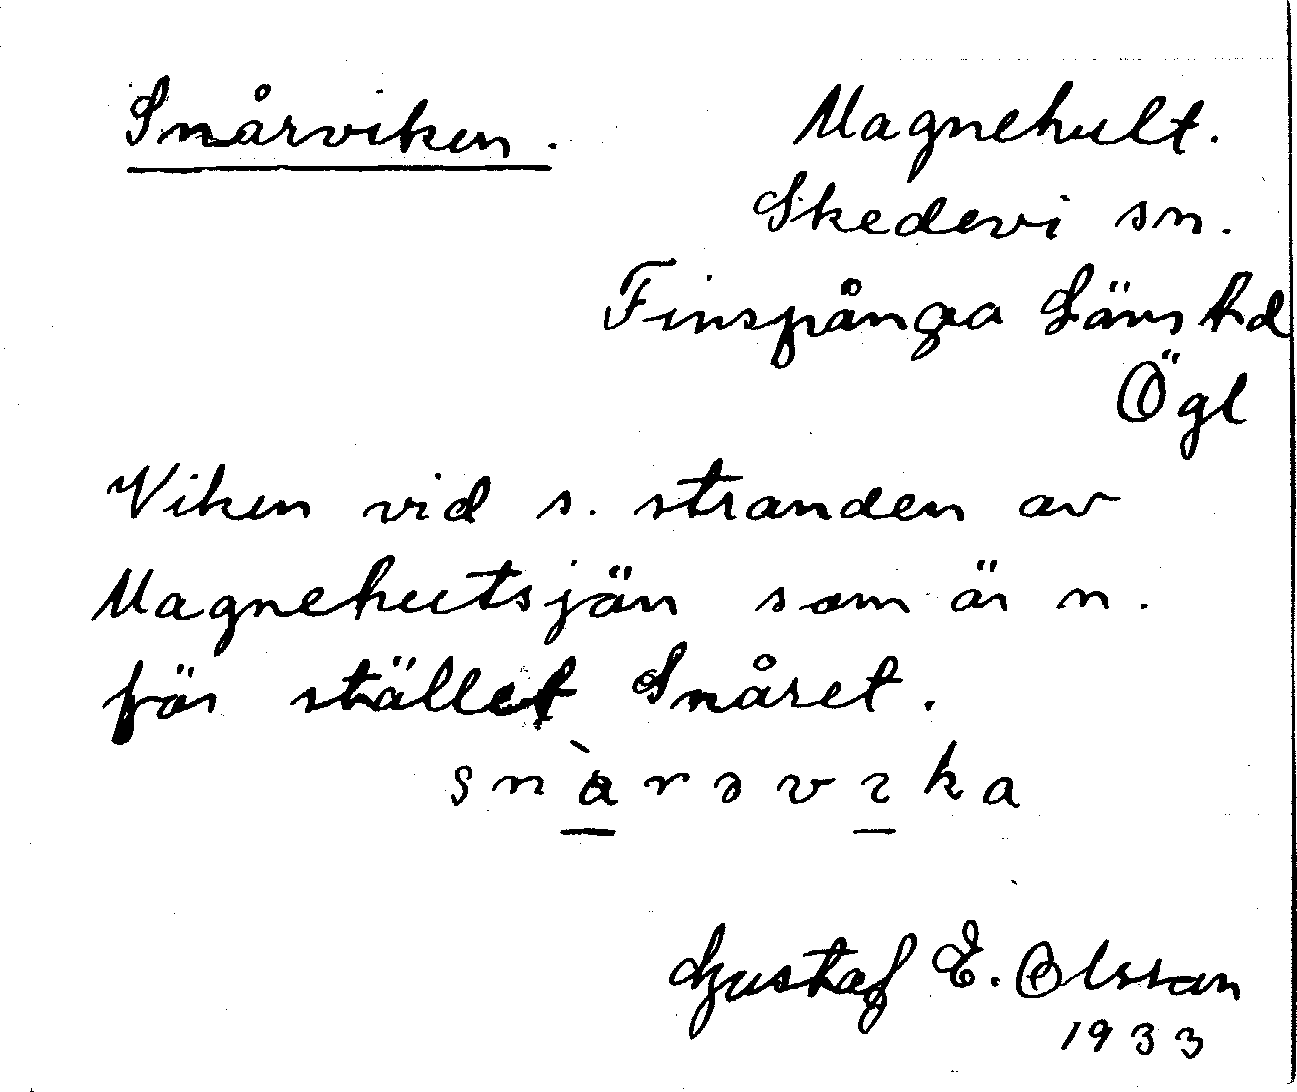 Snårviken. Magnehult.
Skedevi sn.
Finspånga Läns hd
Ögl
Viken vid s. stranden av
Magnehutsjön som är n.
för stället Snåret.
Gustaf E. Olsson
1933